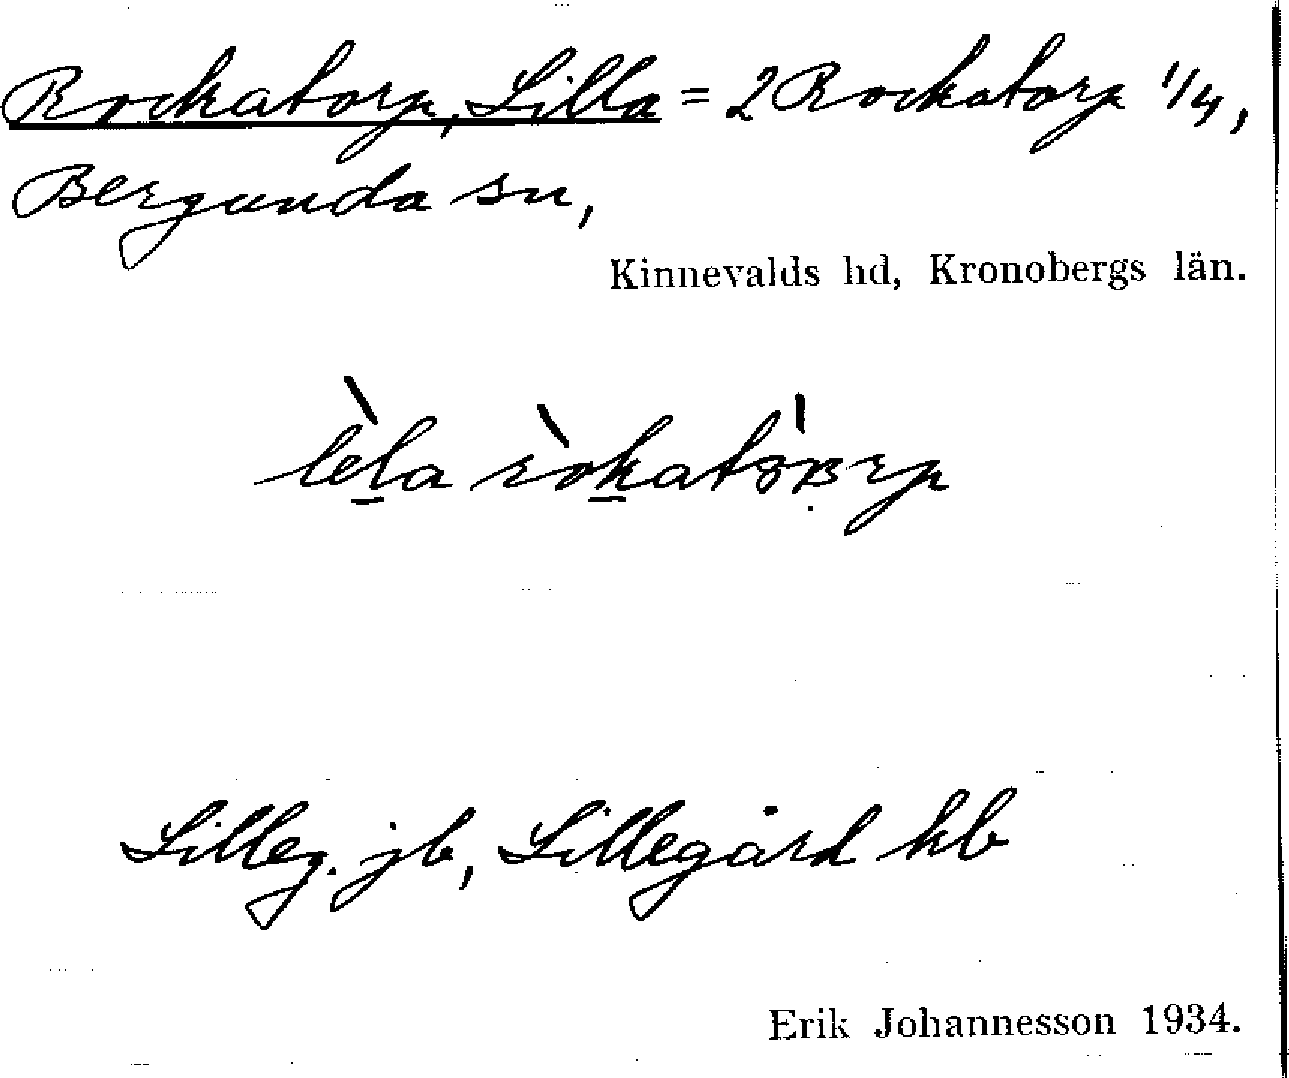 Rockatorp, Lilla = 2 Rockatorp 1/4,
Bergunda sn,
Kinnevalds hd, Kronobergs län.
lèla ròkatɵrp
Lilleg. jb, Lillegård hb
Erik Johannesson 1934.